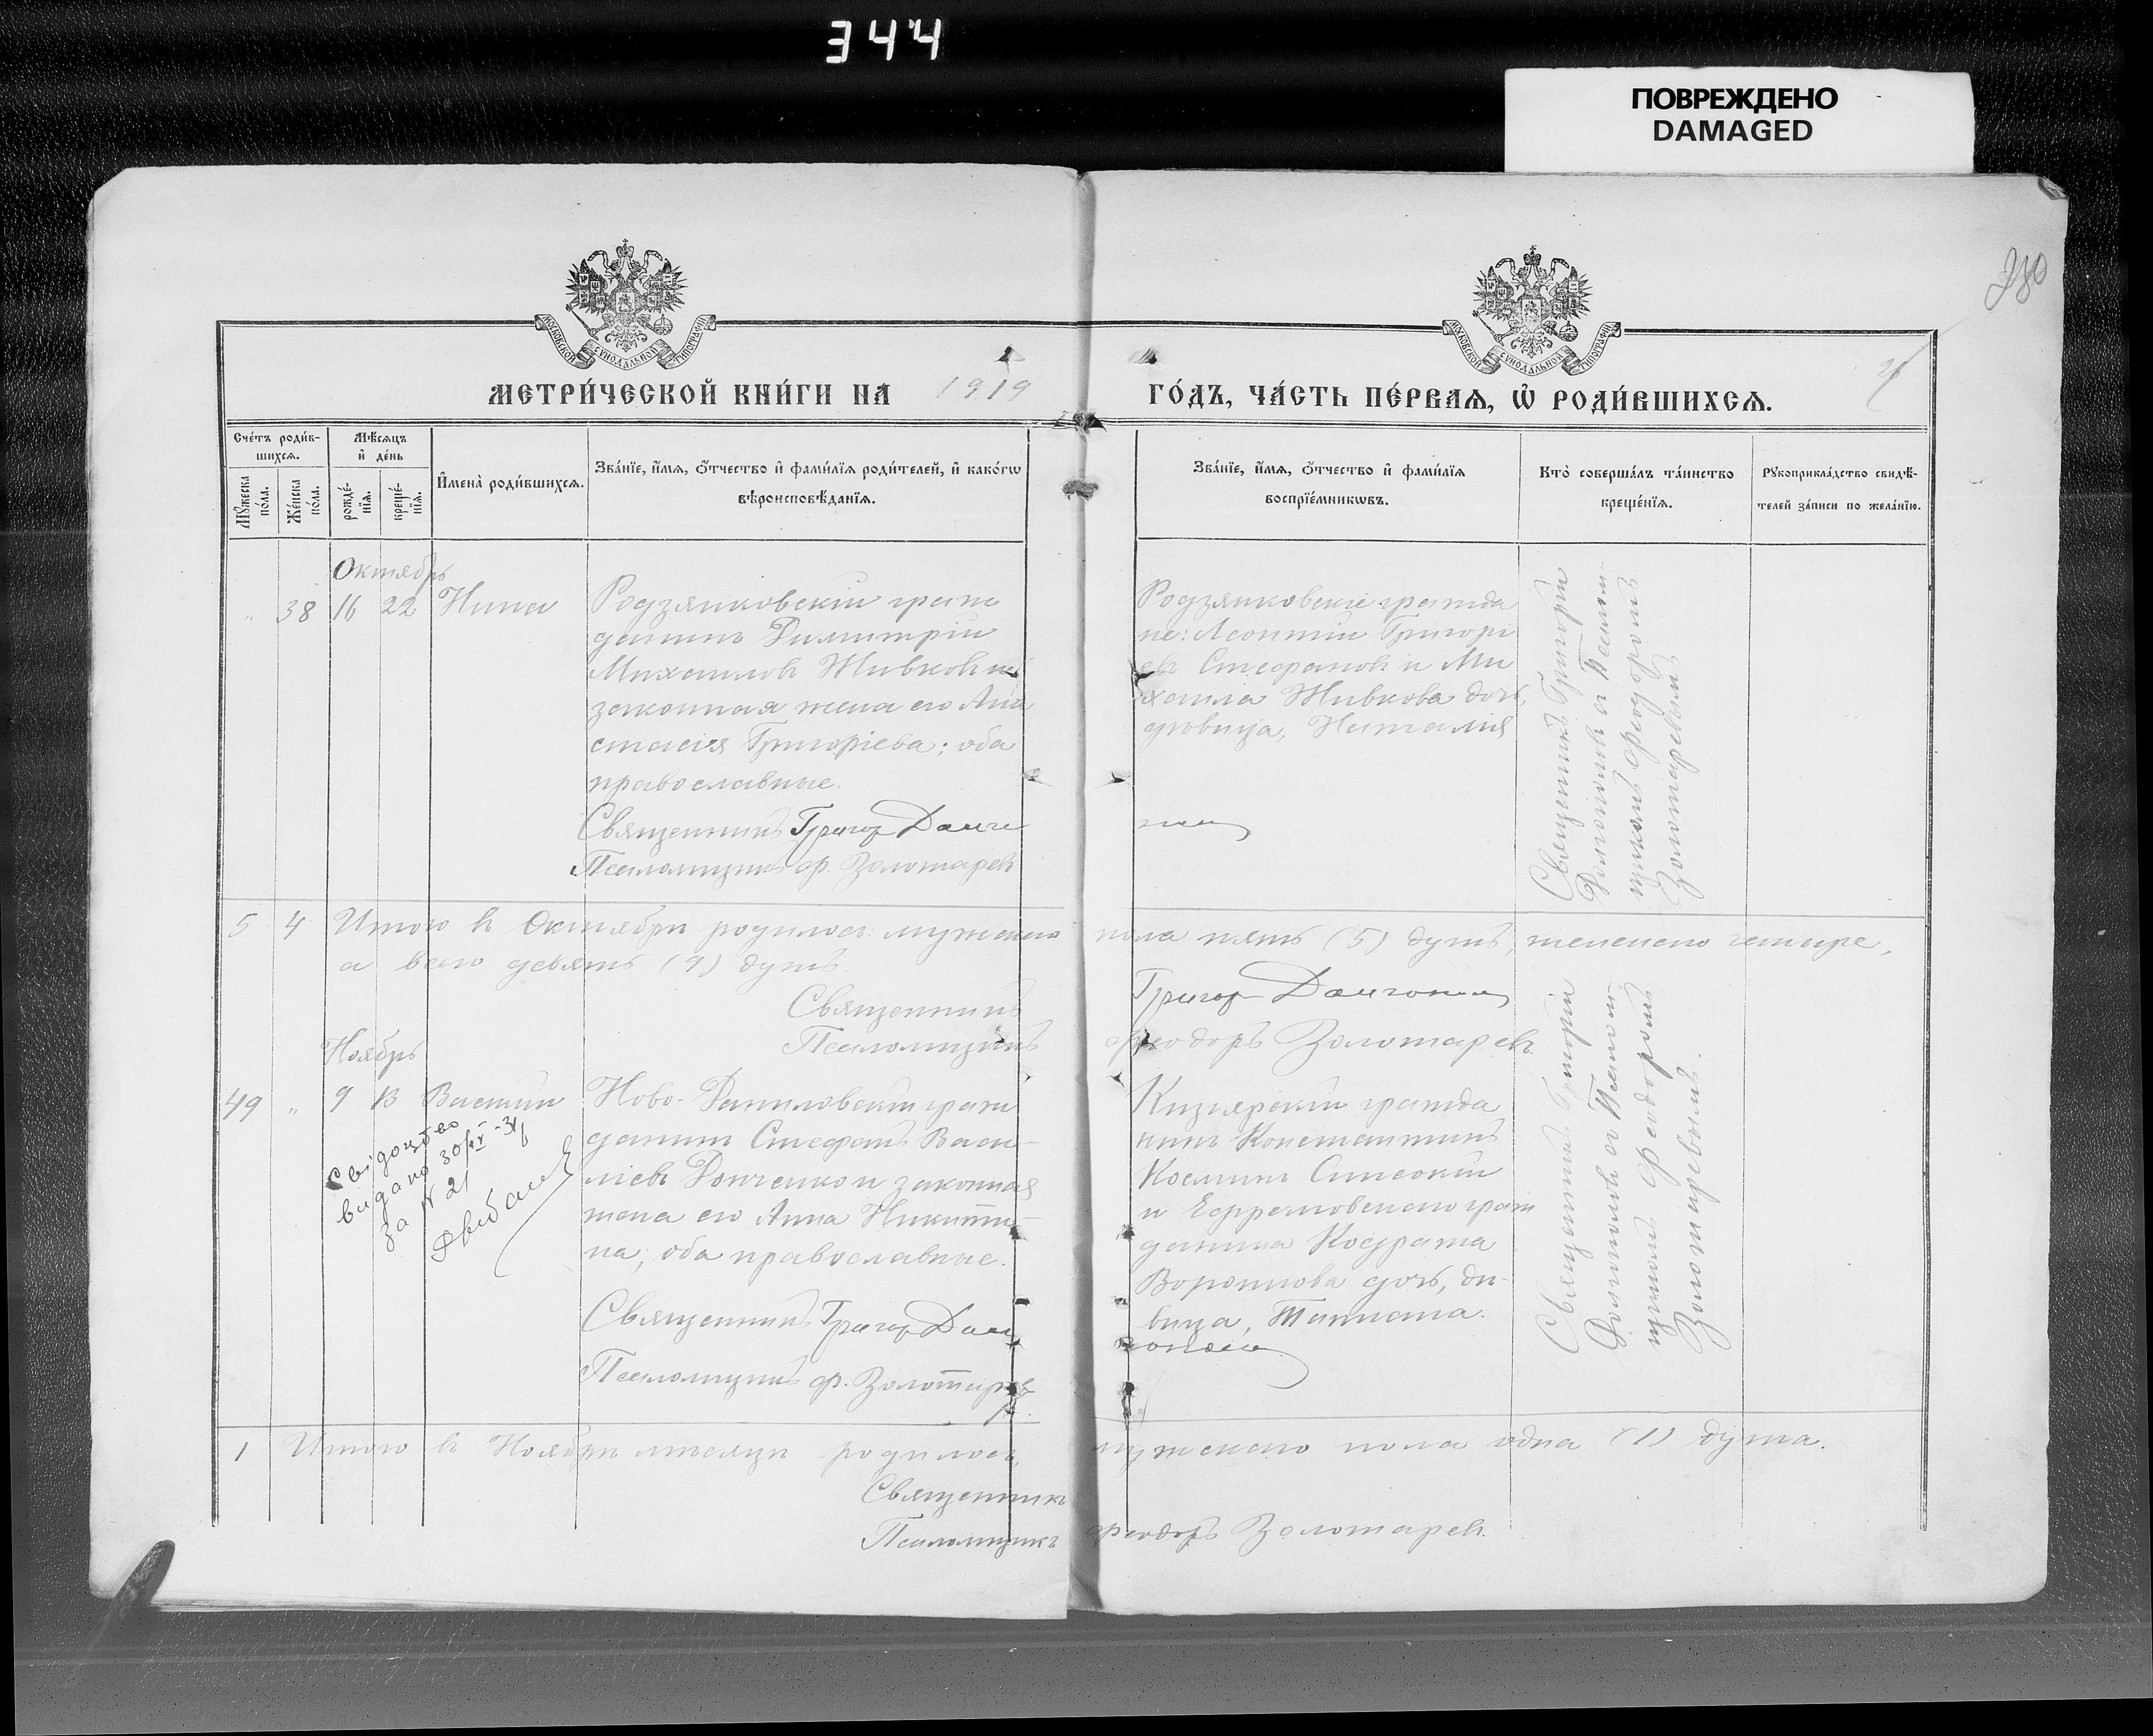 344
ПОВРЕЖДЕНО
DAMAGED
280
МОСКОВСКОЙ СѴНОДАЛЬНОЙ ТИПОГРАФІИ
МОСКОВСКОЙ СѴНОДАЛЬНОЙ ТИПОГРАФІИ
МЕТРИ́ЧЕСКОЙ КНИ́ГИ НА 1919 ГО́ДЪ, ЧА́СТЬ ПЕ́РВАЯ, Ѡ РОДИ́ВШИХСЯ.
Сче́тъ роди́в-
шихся.
Мꙋжеска по́ла.
Же́нска по́ла.
Мѣ́сяцъ
и де́нь
рожде́-
нїя.
креще́-
нїя.
Имена̀ роди́вшихся.
Зва́нїе, и́мя, ѻ́тчество и фами́лїя роди́телей, и како́гѡ
вѣроисповѣ́данїя.
Зва́нїе, и́мя, ѻ́тчество и фами́лїя
воспрїе́мникѡвъ.
Кто̀ соверша́лъ та́инство
креще́нїя.
Рꙋкоприкла́дство свидѣ́-
телей за́писи по жела́нїю.
Октябрь
" 38 16 22 Нина
Родзянковскій граж
данинъ Димитрій
Михаиловъ Живковъ и
законная жена его Ана
стасія Григоріева; оба
православные.
Священникъ Григор
Псаломщикъ Ѳ. Золотаревъ
Родзянковскіе гражда
не: Леонтій Григорі
евъ Стефановъ и Ми
хаила Живкова дочь
дѣвица, Наталія
Священникъ Григорій
съ Псалом-
щикомъ Ѳеодоромъ
Золотаревымъ
5 4 Итого въ Октябрѣ родилось: мужескаго пола пять (5) душъ, женскаго четыре,
а всего девять (9) душъ.
Священникъ Григор
Псаломщикъ Ѳеодоръ Золотаревъ.
Ноябрь
49 " 9 13 Василій
Свідоцтво
видано
за № 21
Ново-Даниловскій граж
данинъ Стефанъ Васи-
ліевъ и законная
жена его Анна Никити-
на; оба православные.
Священникъ Григор
Псаломщикъ Ѳ. Золотарев
Кизіярскій гражда
нинъ Константинъ
Косминъ
и Ефремовскаго граж
данина Кодрата
Воронцова дочь, дѣ-
вица, Татіана.
Священникъ Григорій
съ Псалом-
щикомъ Ѳеодоромъ
Золотаревымъ.
1 Итого въ Ноябрѣ мѣсяцѣ родилось мужескаго пола одна (1) душа.
Священникъ
Псаломщикъ Ѳеодоръ Золотаревъ.